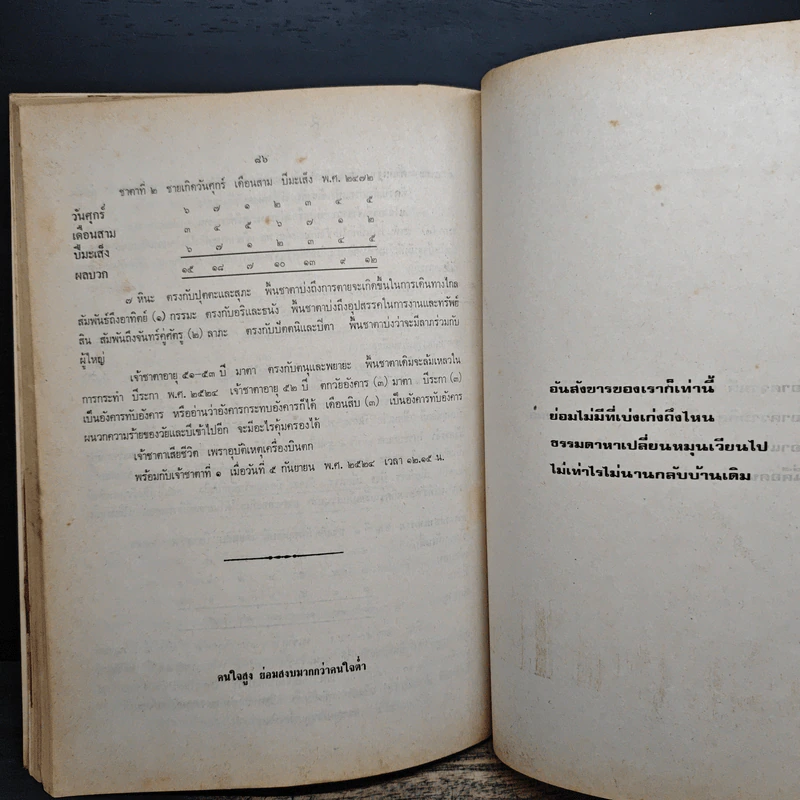 ๘๖
ชาตาที่ ๒ ชายเกิดวันศุกร์ เดือนสาม ปีมะเส็ง พ.ศ. ๒๔๗๒
วันศุกร์ ๖ ๗ ๑ ๒ ๓ ๔ ๕
เดือนสาม ๓ ๔ ๕ ๖ ๗ ๑ ๒
ปีมะเส็ง ๖ ๗ ๑ ๒ ๓ ๔ ๕
ผลบวก ๑๕ ๑๘ ๗ ๑๐ ๑๓ ๙ ๑๒
๗ หินะ ตรงกับปุตตะและสุภะ พื้นชาตาบ่งถึงการตายจะเกิดขึ้นในการเดินทางไกล
สัมพันธ์ถึงอาทิตย์ (๑) กรรมะ ตรงกับอริและธนัง พื้นชาตาบ่งถึงอุปสรรคในการงานและทรัพย์
สิน สัมพันธ์ถึงจันทร์คู่ศัตรู (๒) ลาภะ ตรงกับปัตตนิและปิตา พื้นชาตาบ่งว่าจะมีลาภร่วมกับ
ผู้ใหญ่
เจ้าชาตาอายุ ๕๑-๕๓ ปี มาตา ตรงกับตนุและพยายะ พื้นชาตาเดิมจะล้มเหลวใน
การกระทำ ปีระกา พ.ศ. ๒๕๒๔ เจ้าชาตาอายุ ๕๒ ปี ตกวัยอังคาร (๓) มาตา ปีระกา (๓)
เป็นอังคารทับอังคาร หรืออ่านว่าอังคารกระทบอังคารก็ได้ เดือนสิบ (๓) เป็นอังคารทับอังคาร
ผนวกความร้ายของวัยและปีเข้าไปอีก จะมีอะไรคุ้มครองได้
เจ้าชาตาเสียชีวิต เพราะอุบัติเหตุเครื่องบินตก
พร้อมกับเจ้าชาตาที่ ๑ เมื่อวันที่ ๕ กันยายน พ.ศ. ๒๕๒๔ เวลา ๑๒.๑๕ น.
คนใจสูง ย่อมสงบมากกว่าคนใจต่ำ
อันสังขารของเราก็เท่านี้
ย่อมไม่มีที่เบ่งเก่งถึงไหน
ธรรมดาหาเปลี่ยนหมุนเวียนไป
ไม่เท่าไรไม่นานกลับบ้านเดิม